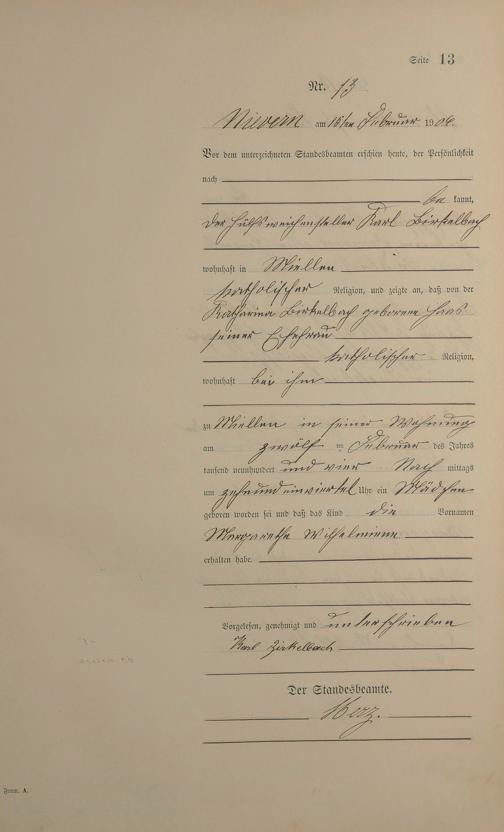 Seite 13
Nr. 13
Nievern am 16ten Februar 1904.
Vor dem unterzeichneten Standesbeamten erschien heute, der Persönlichkeit
nach
be kannt,
der Hülfsweichensteller Karl Birkelbach
wohnhaft in Miellen
katholischer Religion, und zeigte an, daß von der
Katharina Birkelbach geborene Haas
seiner Ehefrau
katholischer Religion,
wohnhaft bei ihm
zu Miellen in seiner Wohnung
am zwölf ten Februar des Jahres
tausend neunhundert und vier Nach mittags
um zehn und einviertel Uhr ein Mädchen
geboren worden sei und daß das Kind die Vornamen
Margarethe Wilhelmiene
erhalten habe.
Vorgelesen, genehmigt und unterschrieben
Karl Birkelbach
Der Standesbeamte.
Form. A.